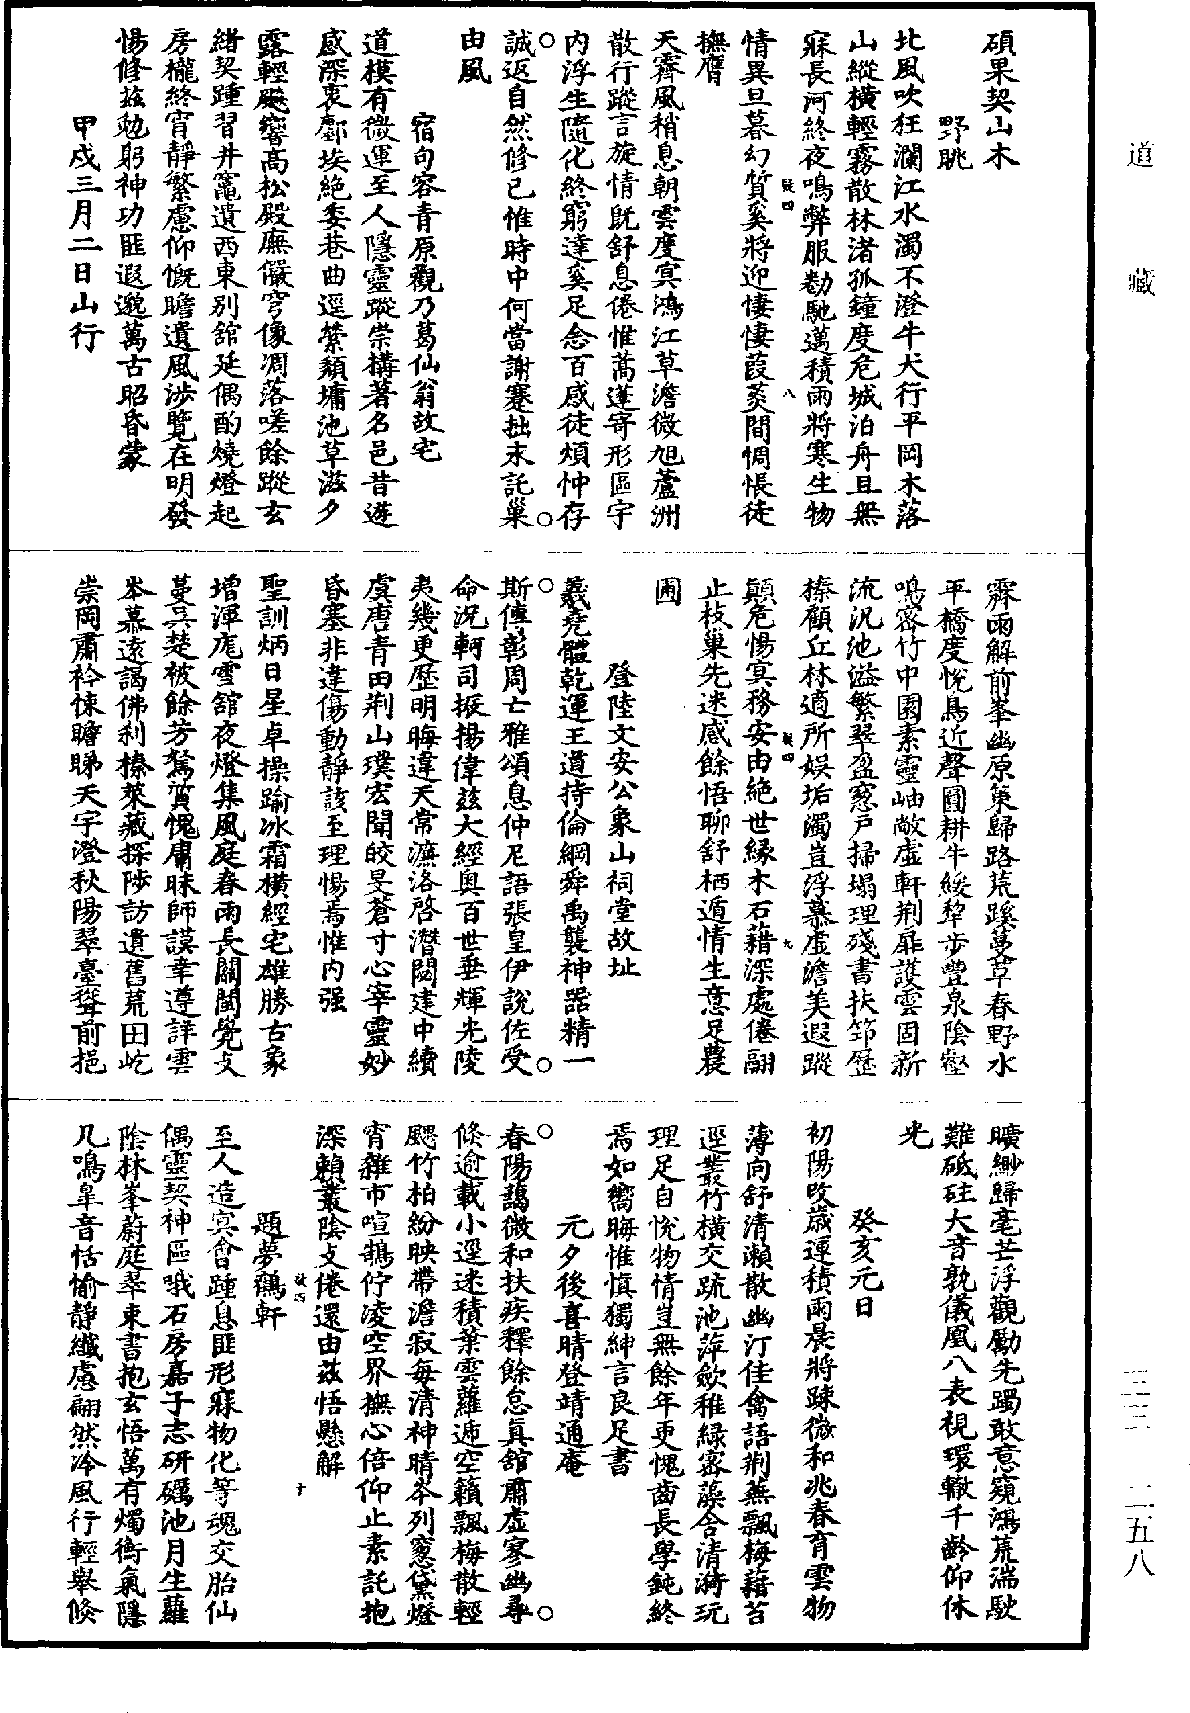 道藏
三三
二五八
碩果契山木
野眺
北風吹狂瀾江水濁不澄牛犬行平岡木落
山縱橫輕霧散林渚孤鐘度危城泊舟且無
寐長河終夜鳴弊服勌馳邁積雨將寒生物
情異旦暮幻質奚將迎悽悽葭菼間惆悵徒
撫膺
天霽風稍息朝雲度㝠鴻江草澹微旭蘆洲
散行蹤言旋情旣舒息倦惟蒿蓬寄形區宇
内浮生隨化終窮達奚足念百感徒煩忡存
誠返自然修己惟時中何當謝蹇拙末託巢
由風
宿句容青原觀乃葛仙翁故宅
道模有微運至人隱靈蹤崇構著名邑昔遊
感深衷鄽埃絶委巷曲逕縈頹墉池草滋夕
露輕颸響高松殿廡儼穹像凋落嗟餘蹤玄
緒契踵習井竈遺西東别舘延偶酌燒燈起
房櫳終宵靜繁慮仰慨瞻遺風涉覽在明發
惕修茲勉躬神功匪遐邈萬古昭昏蒙
甲戌三月二日山行
霽雨解前峯幽原策歸路荒蹊蔓草春野水
平橋度悅鳥近聲圓耕牛緩犂步豐泉陰壑
鳴密竹中園素靈岫敞虛軒荆扉護雲固新
流汎池溢繁翠盈窓戶掃塌理殘書扶筇歷
榛顧丘林適所娱垢濁豈浮慕虛澹美遐蹤
顛危惕冥務安由絶世緣木石藉深處倦翮
止枝巢先迷感餘悟聊舒栖遁情生意足農
圃
登陸文安公象山祠堂故址
羲堯體乾運王道持倫綱舜禹襲神器精一
斯傳彰周亡雅頌息仲尼語張皇伊說佐受
命況軻司振揚偉茲大經奥百世垂輝光陵
夷幾更歷明晦違天常濂洛啓潛閟建中續
虞唐青田荆山璞宏聞皎旻蒼寸心宰靈妙
昏塞非違傷動靜該至理惕焉惟内强
聖訓炳日星卓操踰冰霜橫經宅雄勝古象
增渾厖雪舘夜燈集風庭春雨長闢閫覺攴
蔓吴楚被餘芳駑質愧庸昧師謨幸遵詳雲
岑慕遠謁佛刹榛萊藏探陟訪遺舊荒田屹
崇岡肅衿悚瞻睇天宇澄秋陽翠臺聳前挹
曠緲歸毫芒浮觀勵先躅敢意窺鴻荒湍駛
難砥砫大音孰儀凰八表視環轍千齡仰休
光
癸亥元日
初陽改歲運積雨晨將踈微和兆春育雲物
薄向舒清瀬散幽汀佳禽語荆蕪飄梅藉苔
逕叢竹橫交疏池萍歛稚緑密藻含清漪玩
理足自悅物情豈無餘年更愧齒長學鈍終
焉如嚮晦惟慎獨紳言良足書
元夕後喜晴登靖通庵
春陽靄微和扶疾釋餘怠真舘肅虛寥幽尋
倏逾載小逕迷積葉雲蘿遞空籟飄梅散輕
颸竹柏紛映帶澹寂每清神晴岑列窓黛燈
宵雜市喧鵠佇淩空界撫心倍仰止素託抱
深賴叢陰攴倦還由茲悟懸解
題夢鶴軒
至人造㝠會踵息匪形寐物化等魂交胎仙
偶靈契神區哦石房嘉子志研礪池月生蘿
陰林峯蔚庭翠東書抱玄悟萬有燭衝氣隱
几鳴皐音恬愉靜纖慮翩然泠風行輕舉倏